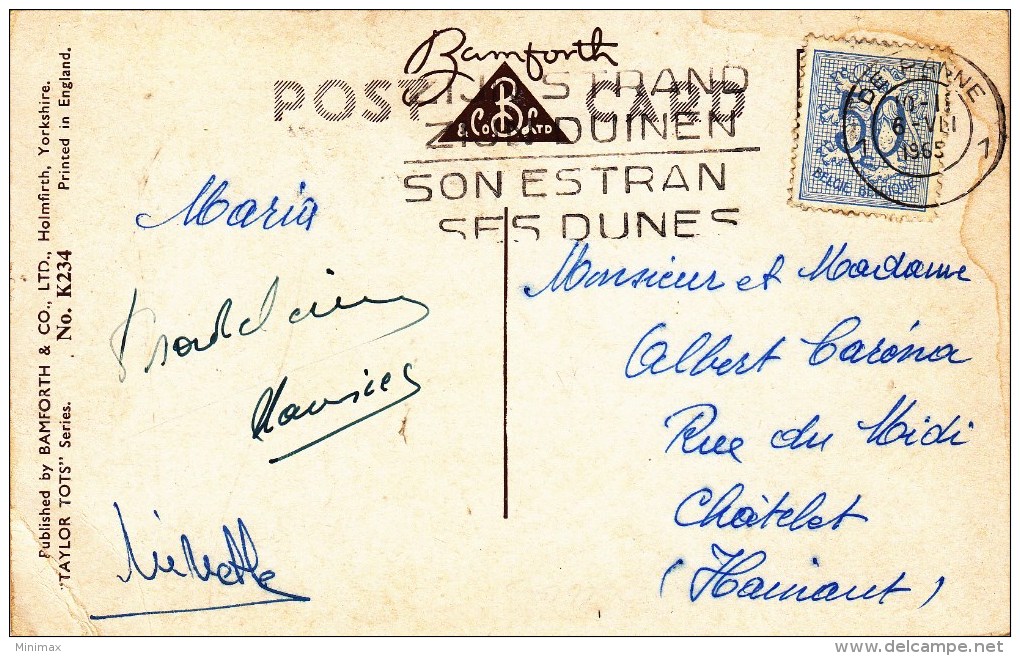 Published by BAMFORTH & CO., LTD., Holmfirth, Yorkshire.
"TAYLOR TOTS" Series. No. K234 Printed in England.
Bamforth
POST CARD
B
& Co LTD
STRAND
DUINEN
SON ESTRAN
SES DUNES
DE PANNE
6 VII
1965
1 1
50
BELGIE BELGIQUE
Maria
Maurice
Monsieur et Madame
Albert Caréna
Rue du Midi
Châtelet
(Hainaut)
Minimax
delcampe.net